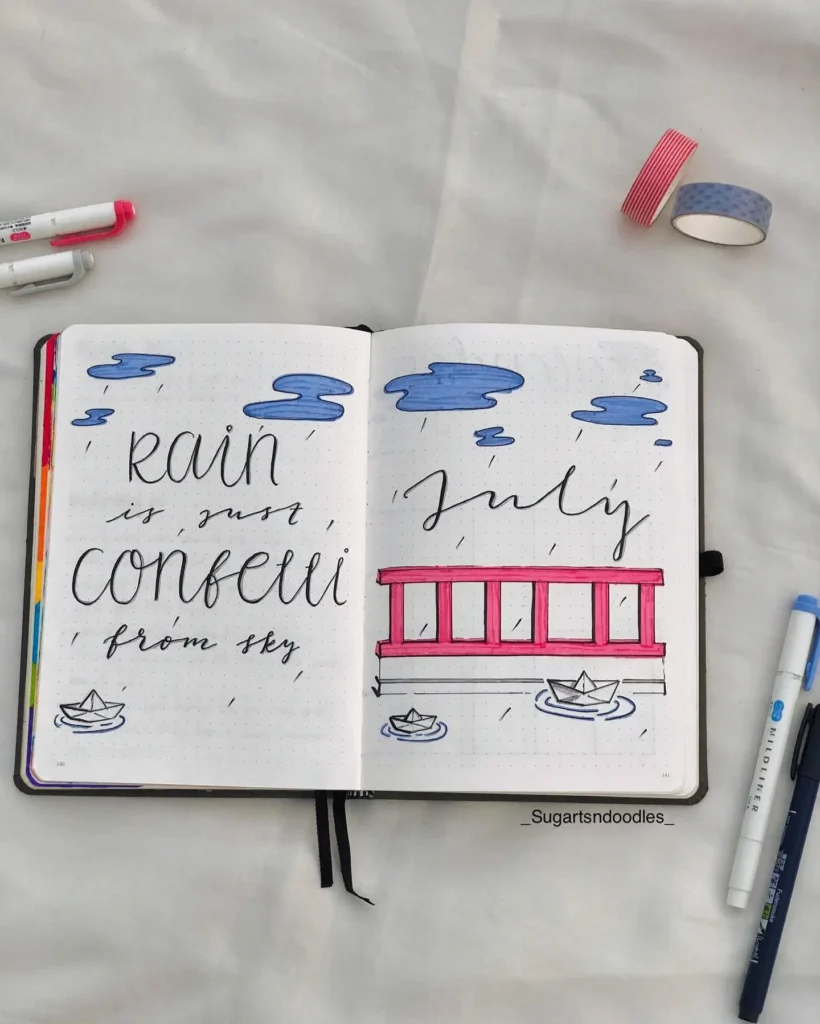 Rain
is just
confetti
from sky
July
_Sugartsndoodles_
MILDLINER